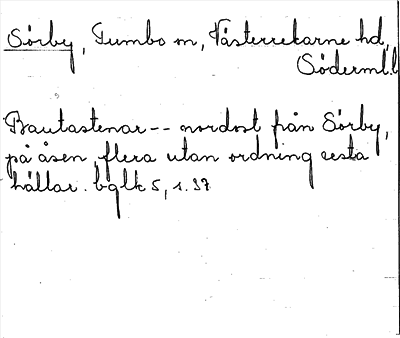 Sörby, Tumbo sn, Västerrekarne hd,
Söderml.l
Bautastenar -- nordost från Sörby,
på åsen, flera utan ordning resta
hällar. bglk 5, s. 37